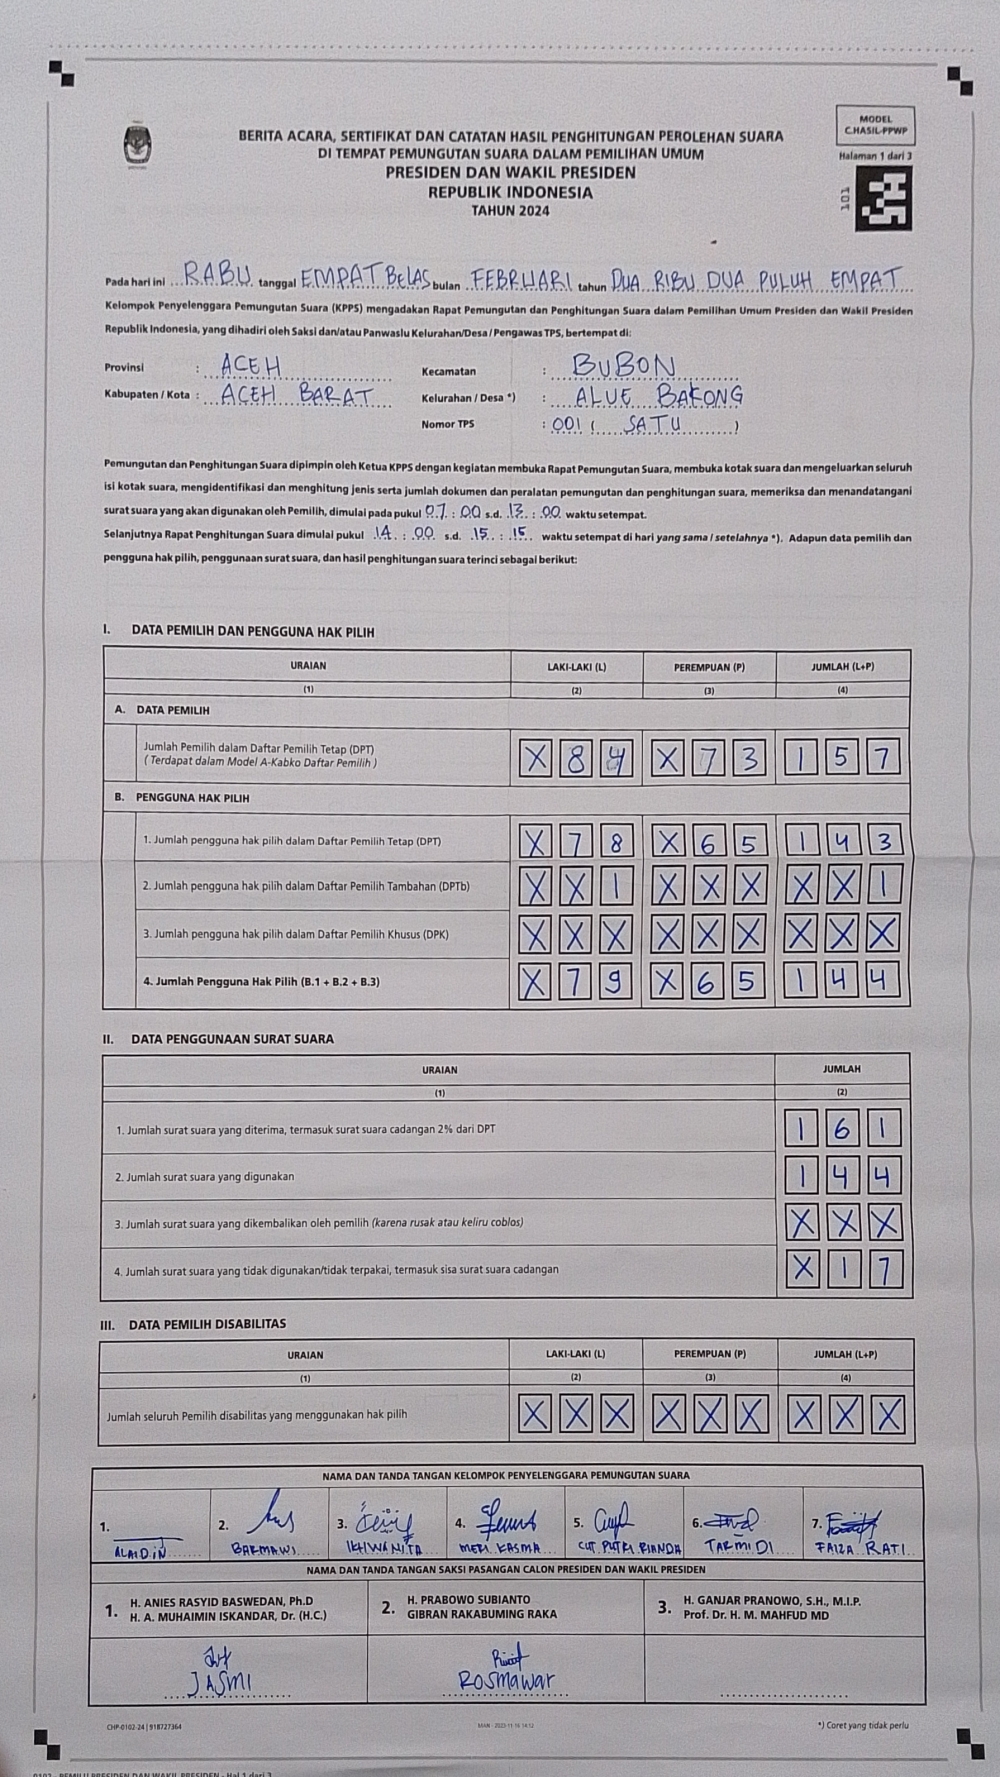 MODEL
C.HASIL-PPWP
Halaman 1 dari 3
101
BERITA ACARA, SERTIFIKAT DAN CATATAN HASIL PENGHITUNGAN PEROLEHAN SUARA
DI TEMPAT PEMUNGUTAN SUARA DALAM PEMILIHAN UMUM
PRESIDEN DAN WAKIL PRESIDEN
REPUBLIK INDONESIA
TAHUN 2024
Pada hari ini RABU tanggal EMPAT BELAS bulan FEBRUARI tahun DUA RIBU DUA PULUH EMPAT
Kelompok Penyelenggara Pemungutan Suara (KPPS) mengadakan Rapat Pemungutan dan Penghitungan Suara dalam Pemilihan Umum Presiden dan Wakil Presiden
Republik Indonesia, yang dihadiri oleh Saksi dan/atau Panwaslu Kelurahan/Desa / Pengawas TPS, bertempat di:
Provinsi : ACEH Kecamatan : BUBON
Kabupaten / Kota : ACEH BARAT Kelurahan / Desa *) : ALUE BAKONG
Nomor TPS : 001 ( SATU )
Pemungutan dan Penghitungan Suara dipimpin oleh Ketua KPPS dengan kegiatan membuka Rapat Pemungutan Suara, membuka kotak suara dan mengeluarkan seluruh
isi kotak suara, mengidentifikasi dan menghitung jenis serta jumlah dokumen dan peralatan pemungutan dan penghitungan suara, memeriksa dan menandatangani
surat suara yang akan digunakan oleh Pemilih, dimulai pada pukul 07 : 00 s.d. 13 : 00 waktu setempat.
Selanjutnya Rapat Penghitungan Suara dimulai pukul 14 : 00 s.d. 15 : 15 waktu setempat di hari yang sama / setelahnya *). Adapun data pemilih dan
pengguna hak pilih, penggunaan surat suara, dan hasil penghitungan suara terinci sebagai berikut:
I. DATA PEMILIH DAN PENGGUNA HAK PILIH
URAIAN LAKI-LAKI (L) PEREMPUAN (P) JUMLAH (L+P)
(1) (2) (3) (4)
A. DATA PEMILIH
Jumlah Pemilih dalam Daftar Pemilih Tetap (DPT)
( Terdapat dalam Model A-Kabko Daftar Pemilih ) X 8 4 X 7 3 1 5 7
B. PENGGUNA HAK PILIH
1. Jumlah pengguna hak pilih dalam Daftar Pemilih Tetap (DPT) X 7 8 X 6 5 1 4 3
2. Jumlah pengguna hak pilih dalam Daftar Pemilih Tambahan (DPTb) X X 1 X X X X X 1
3. Jumlah pengguna hak pilih dalam Daftar Pemilih Khusus (DPK) X X X X X X X X X
4. Jumlah Pengguna Hak Pilih (B.1 + B.2 + B.3) X 7 9 X 6 5 1 4 4
II. DATA PENGGUNAAN SURAT SUARA
URAIAN JUMLAH
(1) (2)
1. Jumlah surat suara yang diterima, termasuk surat suara cadangan 2% dari DPT 1 6 1
2. Jumlah surat suara yang digunakan 1 4 4
3. Jumlah surat suara yang dikembalikan oleh pemilih (karena rusak atau keliru coblos) X X X
4. Jumlah surat suara yang tidak digunakan/tidak terpakai, termasuk sisa surat suara cadangan X 1 7
III. DATA PEMILIH DISABILITAS
URAIAN LAKI-LAKI (L) PEREMPUAN (P) JUMLAH (L+P)
(1) (2) (3) (4)
Jumlah seluruh Pemilih disabilitas yang menggunakan hak pilih X X X X X X X X X
NAMA DAN TANDA TANGAN KELOMPOK PENYELENGGARA PEMUNGUTAN SUARA
1. 2. 3. 4. 5. 6. 7.
ALAIDIN BARMAWI IKHWANITA MERI KASMA CUT PUTRI RIANDA TARMIDI FAIZA RATI
NAMA DAN TANDA TANGAN SAKSI PASANGAN CALON PRESIDEN DAN WAKIL PRESIDEN
1. H. ANIES RASYID BASWEDAN, Ph.D
H. A. MUHAIMIN ISKANDAR, Dr. (H.C.)
2. H. PRABOWO SUBIANTO
GIBRAN RAKABUMING RAKA
3. H. GANJAR PRANOWO, S.H., M.I.P.
Prof. Dr. H. M. MAHFUD MD
JASMI Rosmawar
CHP-0102-24 | 918727364
*) Coret yang tidak perlu